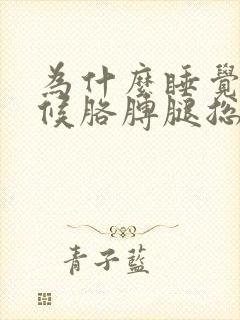 為什麼睡覺
候胳膊腿总
青子藍